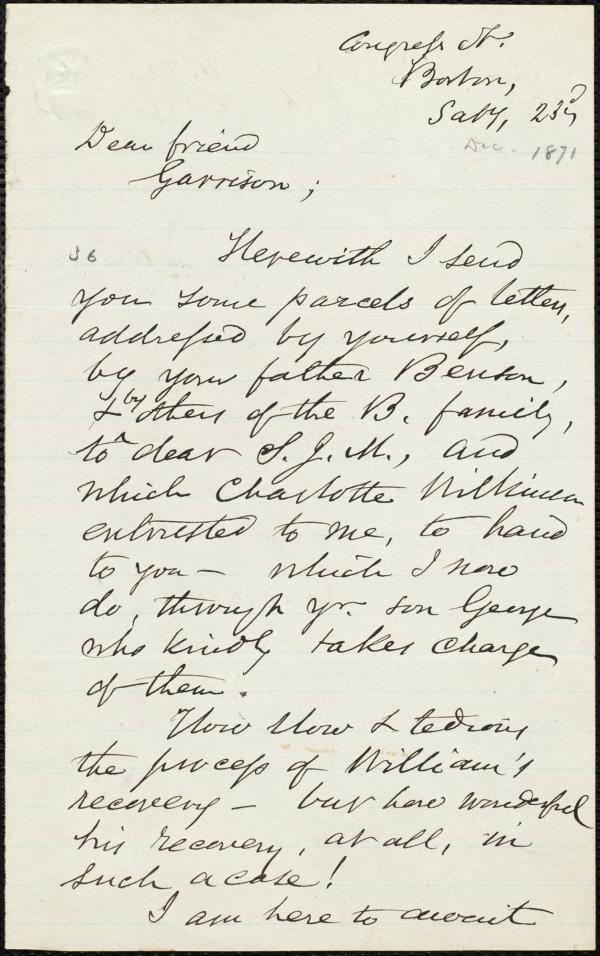 Congress St.
Boston,
Saty, 23d,
Dec. 1871
Dear friend
Garrison;
36
Herewith I send
you some parcels of letters,
addressed by yourself,
by your father Benson,
& by others of the B. family,
to dear S. J. M., and
which Charlotte Wilkinson
entrusted to me, to hand
to you — which I now
do, through yr. son George
who kindly takes charge
of them.
How slow & tedious
the process of William's
recovery — but how wonderful
his recovery, at all, in
such a case!
I am here to await